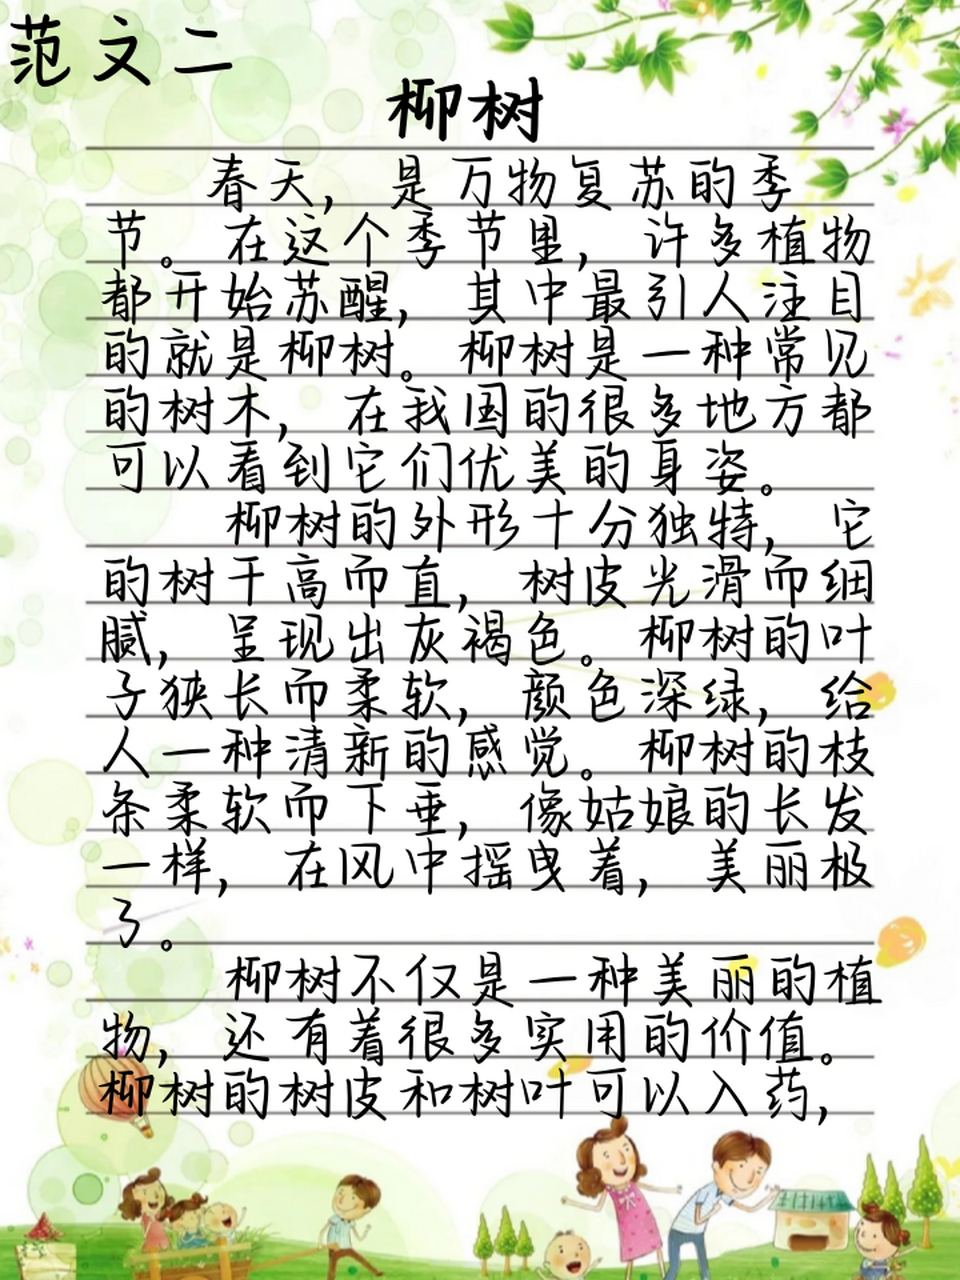 范文二
柳树
春天，是万物复苏的季
节。在这个季节里，许多植物
都开始苏醒，其中最引人注目
的就是柳树。柳树是一种常见
的树木，在我国的很多地方都
可以看到它们优美的身姿。
柳树的外形十分独特，它
的树干高而直，树皮光滑而细
腻，呈现出灰褐色。柳树的叶
子狭长而柔软，颜色深绿，给
人一种清新的感觉。柳树的枝
条柔软而下垂，像姑娘的长发
一样，在风中摇曳着，美丽极
了。
柳树不仅是一种美丽的植
物，还有着很多实用的价值。
柳树的树皮和树叶可以入药，